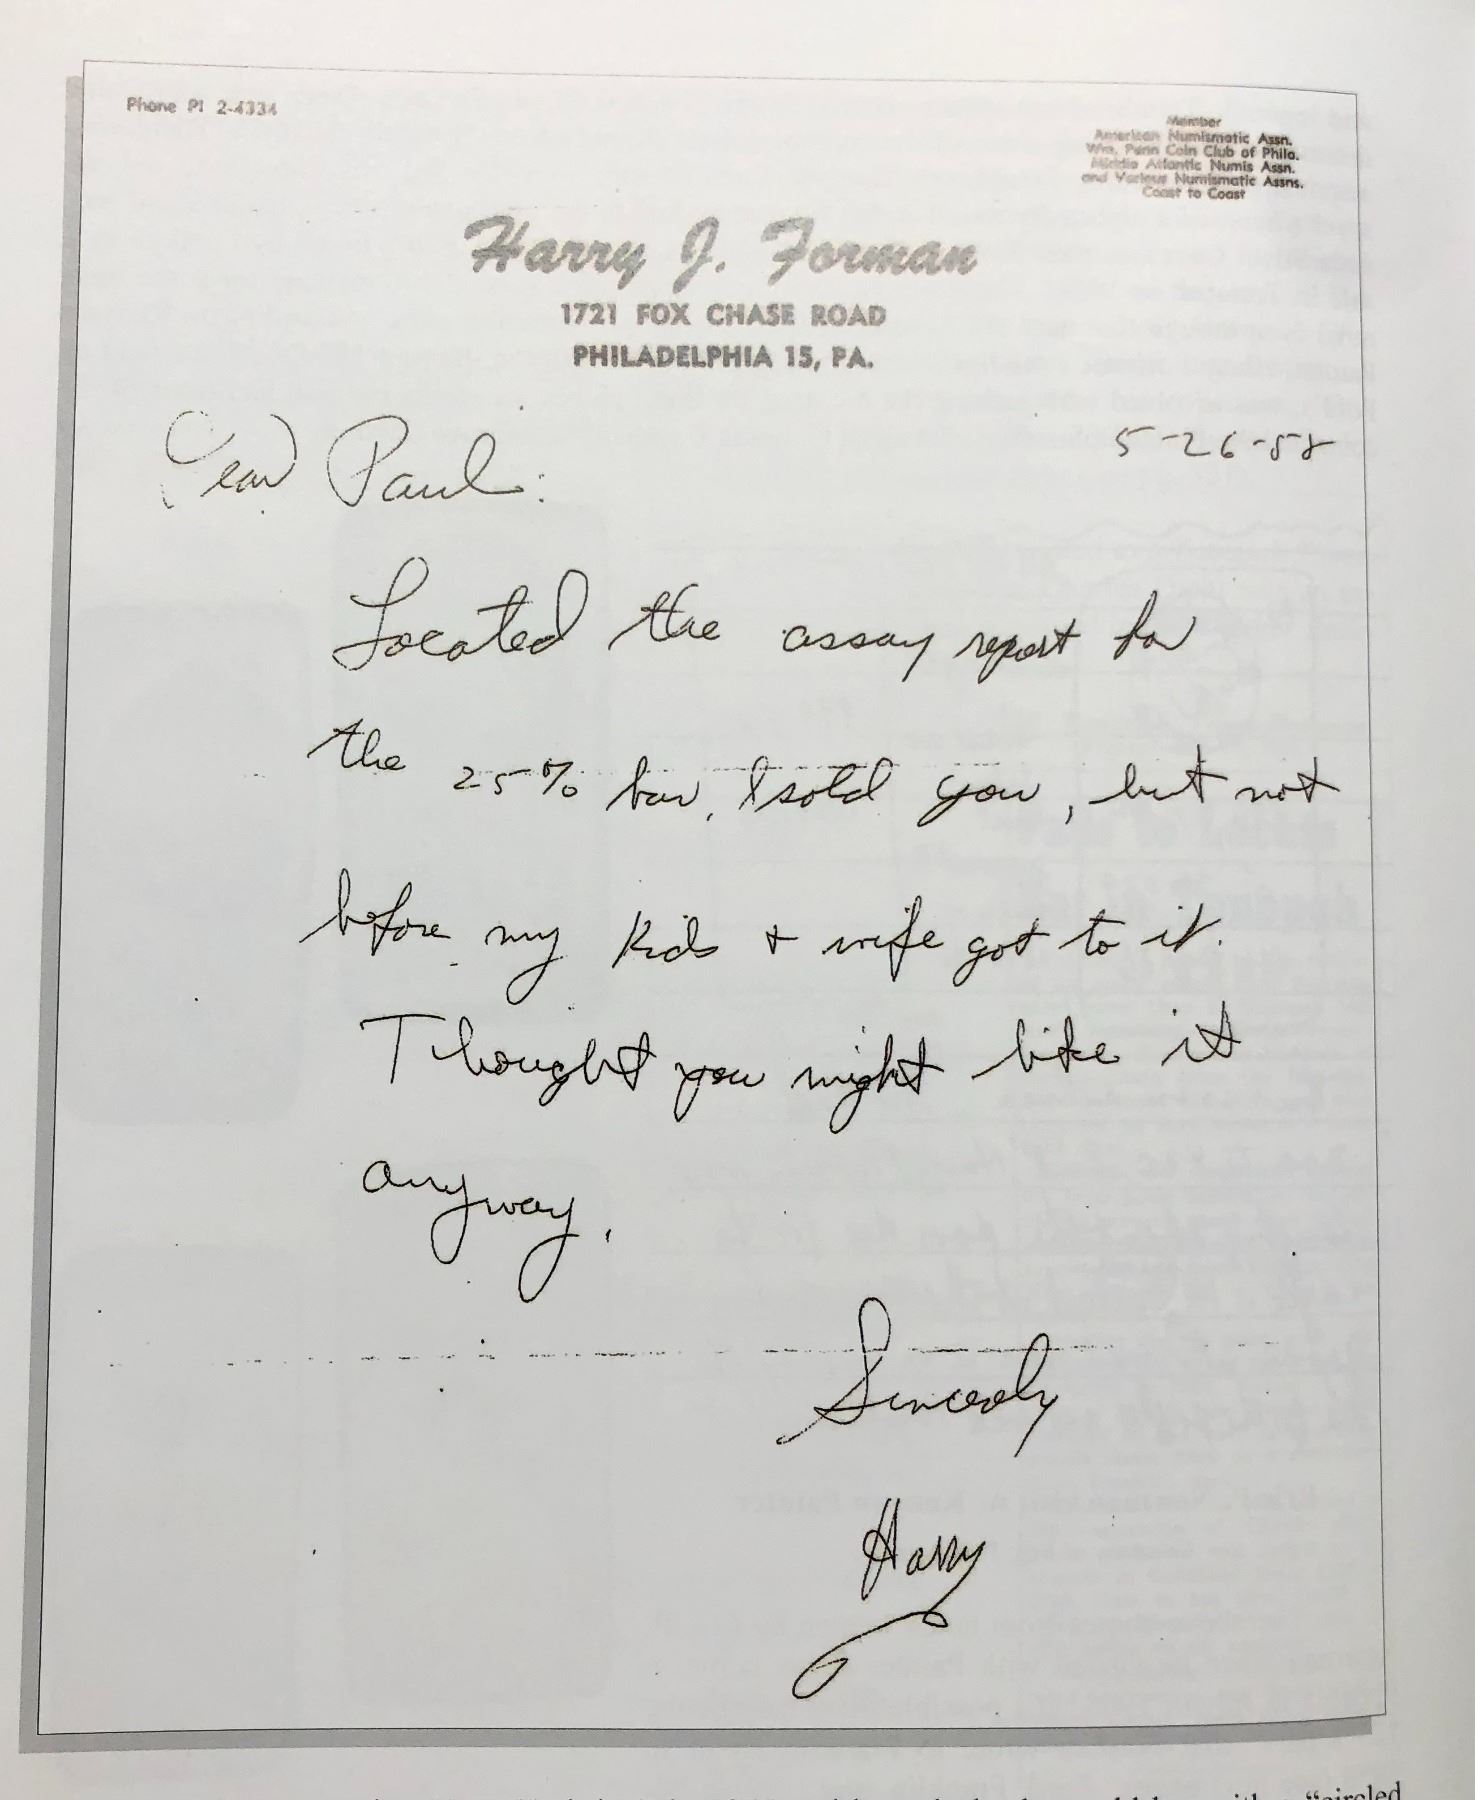 Phone PI 2-4334
Member
American Numismatic Assn.
Wm. Penn Coin Club of Phila.
Middle Atlantic Numis Assn.
and Various Numismatic Assns.
Coast to Coast
Harry J. Forman
1721 FOX CHASE ROAD
PHILADELPHIA 15, PA.
5-26-58
Dear Paul:
Located the assay report for
the 25% bar, I sold you, but not
before my kids + wife got to it.
Thought you might like it
anyway.
Sincerely
Harry
"circled